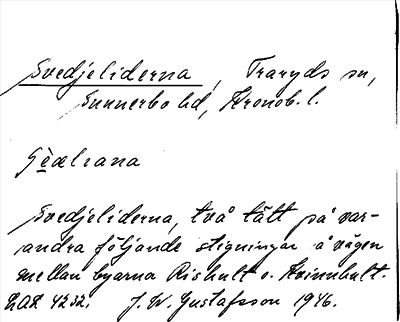 Svedjeliderna, Traryds sn,
Sunnerbo hd, Kronob. l.
Svedjeliderna, två tätt på var-
andra följande stigningar å vägen
mellan byarna Rishult o. Kvinnhult.
LAL 4232. J. W. Gustafsson 1946.